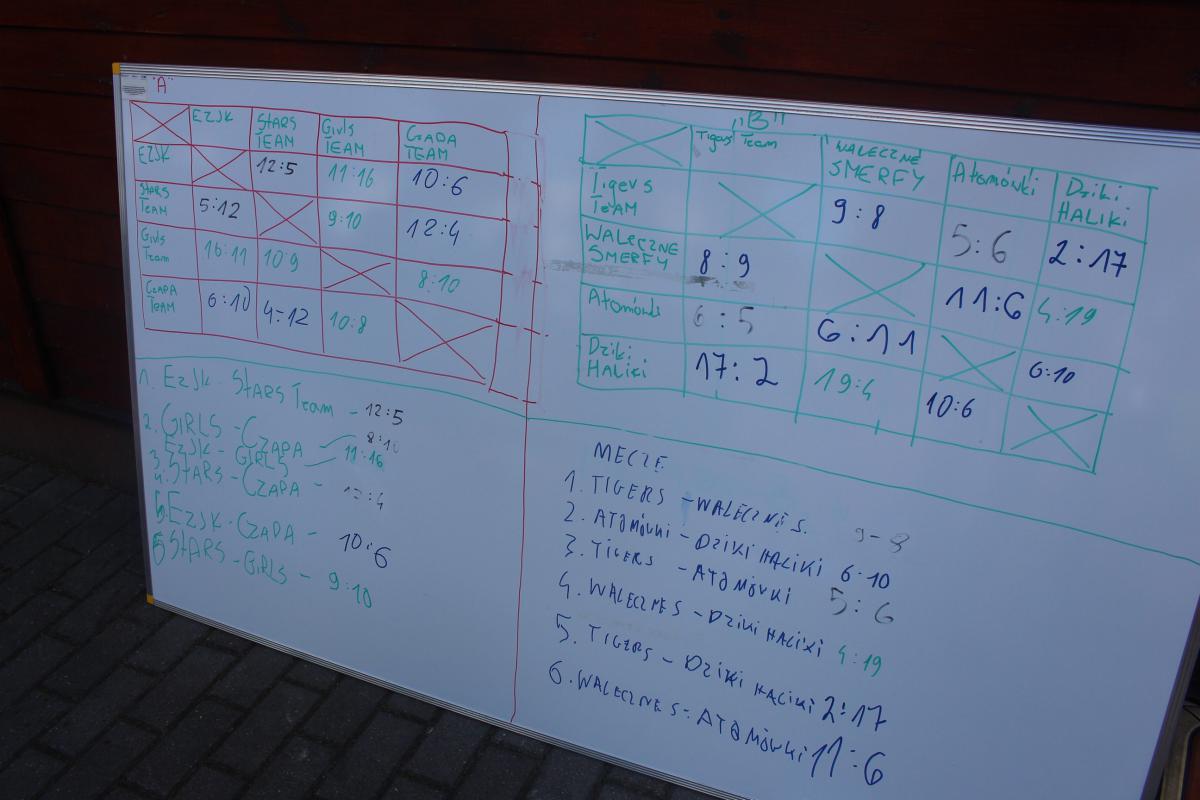 "A"
EZJK STARS TEAM Girls TEAM CZAPA TEAM
EZJK 12:5 11:16 10:6
STARS TEAM 5:12 9:10 12:4
Girls Team 16:11 10:9 8:10
CZAPA TEAM 6:10 4:12 10:8
1. EZJK - STARS Team - 12:5
2. GIRLS - CZAPA 8:10
3. EZJK - GIRLS 11:16
4. STARS - CZAPA - 12:4
5. EZJK - CZAPA - 10:6
STARS - GIRLS - 9:10
„B"
Tigers Team WALECZNE SMERFY Atomówki Dziki HALIKI
Tigers TEAM 9:8 5:6 2:17
WALECZNE SMERFY 8:9 11:6 4:19
Atomówki 6:5 6:11 6:10
Dziki HALIKI 17:2 19:4 10:6
MECZE
1. TIGERS - WALECZNE S. 9-8
2. ATOMÓWKI - DZIKI HALIKI 6:10
3. TIGERS - ATOMÓWKI 5:6
4. WALECZNE S - DZIKI HALIKI 4:19
5. TIGERS - DZIKI HALIKI 2:17
6. WALECZNE S - ATOMÓWKI 11:6